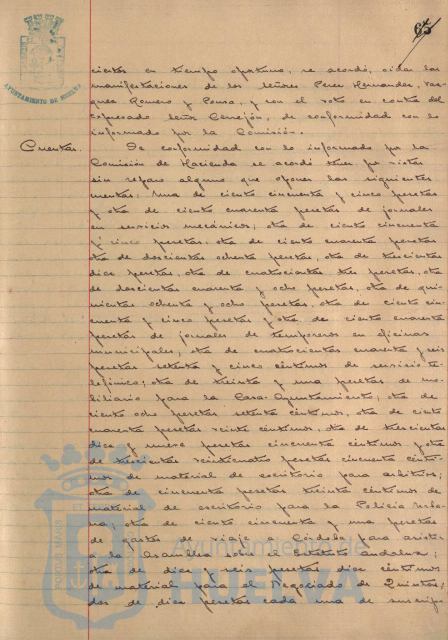 65
AYUNTAMIENTO DE HUELVA
cientos en tiempo oportuno, se acordó, oidas las
manifestaciones de los señores Perez Hernandez, Vaz-
quez Romero y Ponsa, y con el voto en contra del
expresado señor Cerejón, de conformidad con lo
informado por la Comisión.
Cuentas. De conformidad con lo informado por la
Comisión de Hacienda se acordó tener por vistas
sin reparo alguno que oponer las siguientes
cuentas: Una de ciento cincuenta y cinco pesetas
y otra de ciento cuarenta pesetas de jornales
en servicios mecánicos; otra de ciento cincuenta
y cinco pesetas, otra de ciento cuarenta pesetas
otra de doscientas ochenta pesetas, otra de trescientas
diez pesetas, otra de cuatrocientas tres pesetas, otra
de doscientas cuarenta y ocho pesetas, otra de qui-
nientas ochenta y ocho pesetas, otra de ciento cin-
cuenta y cinco pesetas y otra de ciento cuarenta
pesetas de jornales de temporeros en oficinas
municipales; otra de cuatrocientas cuarenta y seis
pesetas setenta y cinco céntimos de servicio te-
lefónico; otra de treinta y una pesetas de mo-
biliario para la Casa-Ayuntamiento; otra de
ciento ocho pesetas setenta céntimos, otra de ciento
cuarenta pesetas veinte céntimos, otra de trescientas
diez y nueve pesetas cincuenta céntimos y otra
de trescientas veinticuatro pesetas cincuenta cénti-
mos de material de escritorio para arbitrios;
otra de cincuenta pesetas treinta céntimos de
material de escritorio para la Policía Urba-
na; otra de ciento cincuenta y una pesetas
de gastos de viaje a Córdoba para asistir
a la Asamblea pro el Estatuto andaluz;
otra de diez y seis pesetas diez céntimos
de material para el Negociado de Quintas;
dos de diez pesetas cada una de suscrip-
Ayuntamiento de
HUELVA
PORTUS MARIS
ET